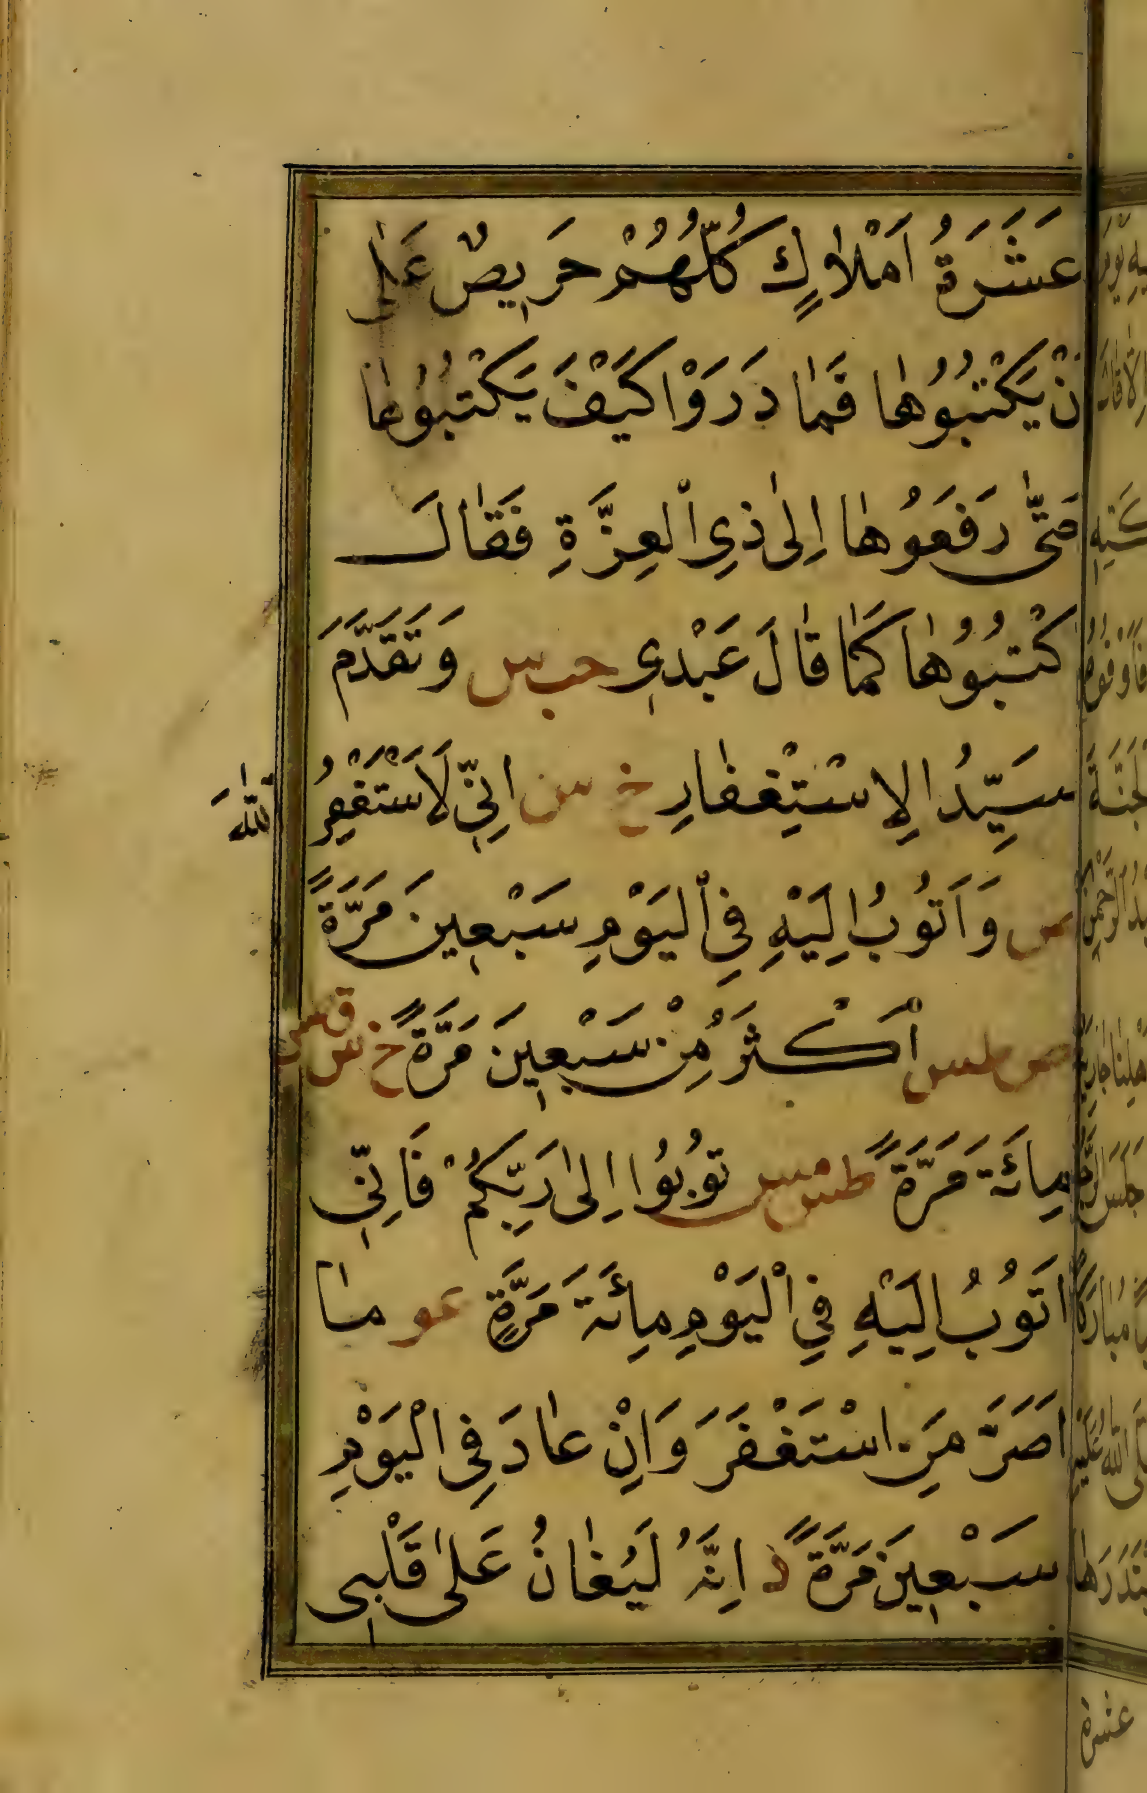 عَشَرَةُ اَمْلاٰكٍ كُلُّهُمْ حَرِيصٌ عَلٰى
نْ يَكْتُبُوُهٰا فَمٰا دَرَوْا كَيْفَ يَكْتُبُوُهٰا
حَتّٰى رَفَعَوُهٰا اِلىٰ ذِى الْعِزَّةِ فَقٰالَ
كْتُبُوُهٰا كَمٰا قٰالَ عَبْدِى حب س وَتَقَدَّمَ
سَيِّدُ الاِسْتِغْفٰارِ خ س اِنِّى لَاَسْتَغْفِرُ اللّٰهَ
س وَاَتوُبُ اِلَيْهِ فِى الْيَوْمِ سَبْعِينَ مَرَّةً
ص طس اَكْثَرَ مِنْ سَبْعِينَ مَرَّةً خ س ق س
مِائَةَ مَرَّةً طس مص توُبوُا اِلىٰ رَبِّكُمْ فَاِنِّى
اَتَوُبُ اِلَيْهِ فِى الْيَوْمِ مِائَةَ مَرَّةٍ عو مٰا
اَصَرَّ مَنِ اسْتَغْفَرَ وَاِنْ عٰادَ فِى الْيَوْمِ
سَبْعِينَ مَرَّةً د اِنَّهُ لَيُغٰانُ عَلىٰ قَلْبِى
عشرة